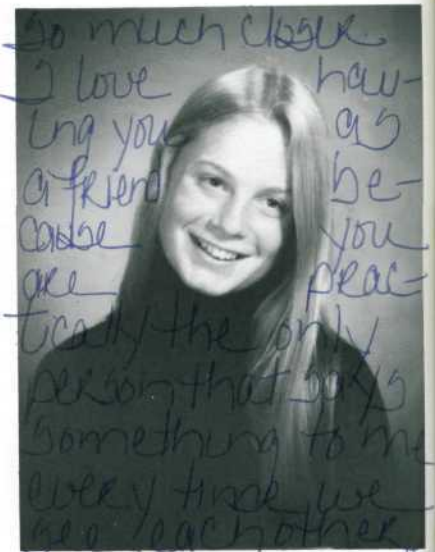 so much closer.
I love hav-
ing you as
a friend be-
cause you
are prac-
tically the only
person that says
something to me
every time we
see each other.